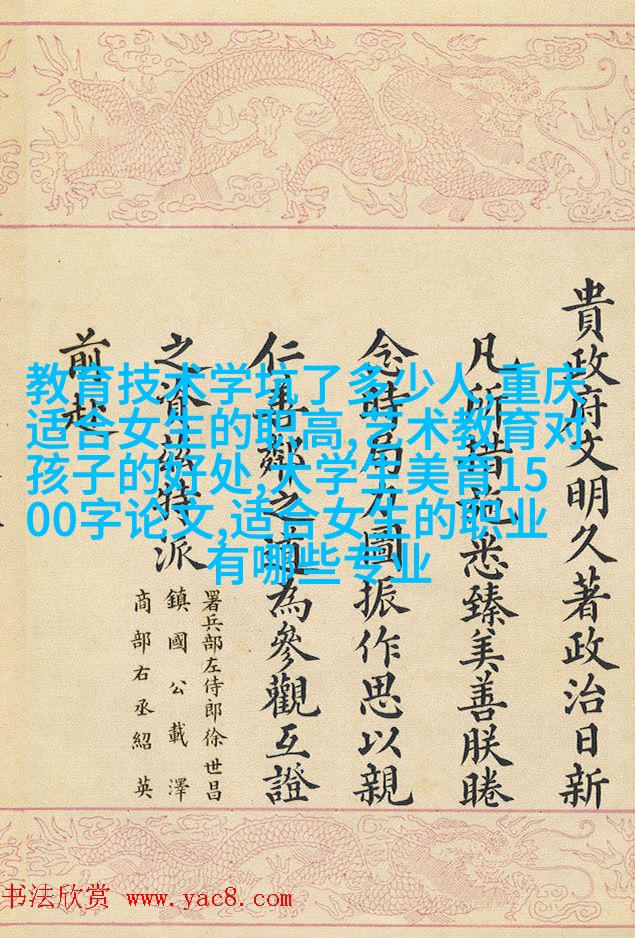 貴政府文明久著政治日新
凡所措施悉臻美善朕睠
念時局力圖振作思以親
仁善鄰之道為參觀互證
之資茲特派
署兵部左侍郎徐世昌
鎮國公載澤
商部右丞紹英
前赴
教育技术学坑了多少人,重庆
适合女生的职高,艺术教育对
孩子的好处,大学生美育15
00字论文,适合女生的职业
有哪些专业
书法欣赏 www.yac8.com